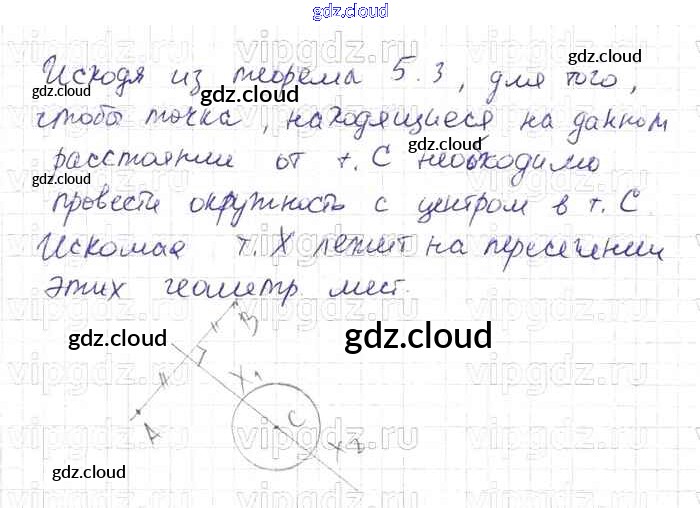 gdz.cloud
Исходя из теорема 5.3, для того,
чтобы точка, находящиеся на данном
расстоянии от т. С необходимо
провести окружность с центром в т. С.
Искомая т. X лежит на пересечении
этих геометр. мест.
gdz.cloud
gdz.cloud
gdz.cloud
gdz.cloud
gdz.cloud
gdz.cloud
gdz.cloud
gdz.cloud
vipgdz.ru
vipgdz.ru
vipgdz.ru
vipgdz.ru
vipgdz.ru
B
X1
C
A
X2